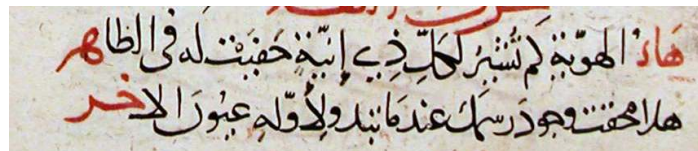 هَاءُ الهويّةِ كم تُشيرُ لكلِّ ذِي إِنيّةٍ خفيَتْ له في الظاهر
هلا محقت وجودَ رسمك عندما تبدو لأوّلهِ عيونَ الاخر